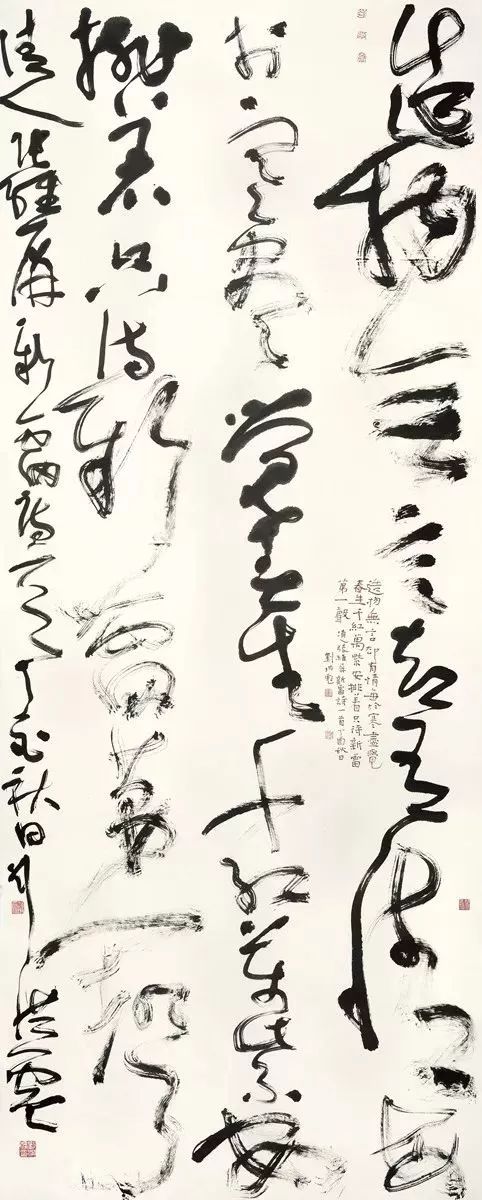 造物無言却有情每
於寒盡覺春生千紅万紫安
排着只待新雷第一聲
清人張維屏新雷詩一首丁酉秋日劉洪彪
造物無言却有情每於寒盡覺
春生千紅萬紫安排着只待新雷
第一聲 清張維屏新雷詩一首丁酉秋日
劉洪彪